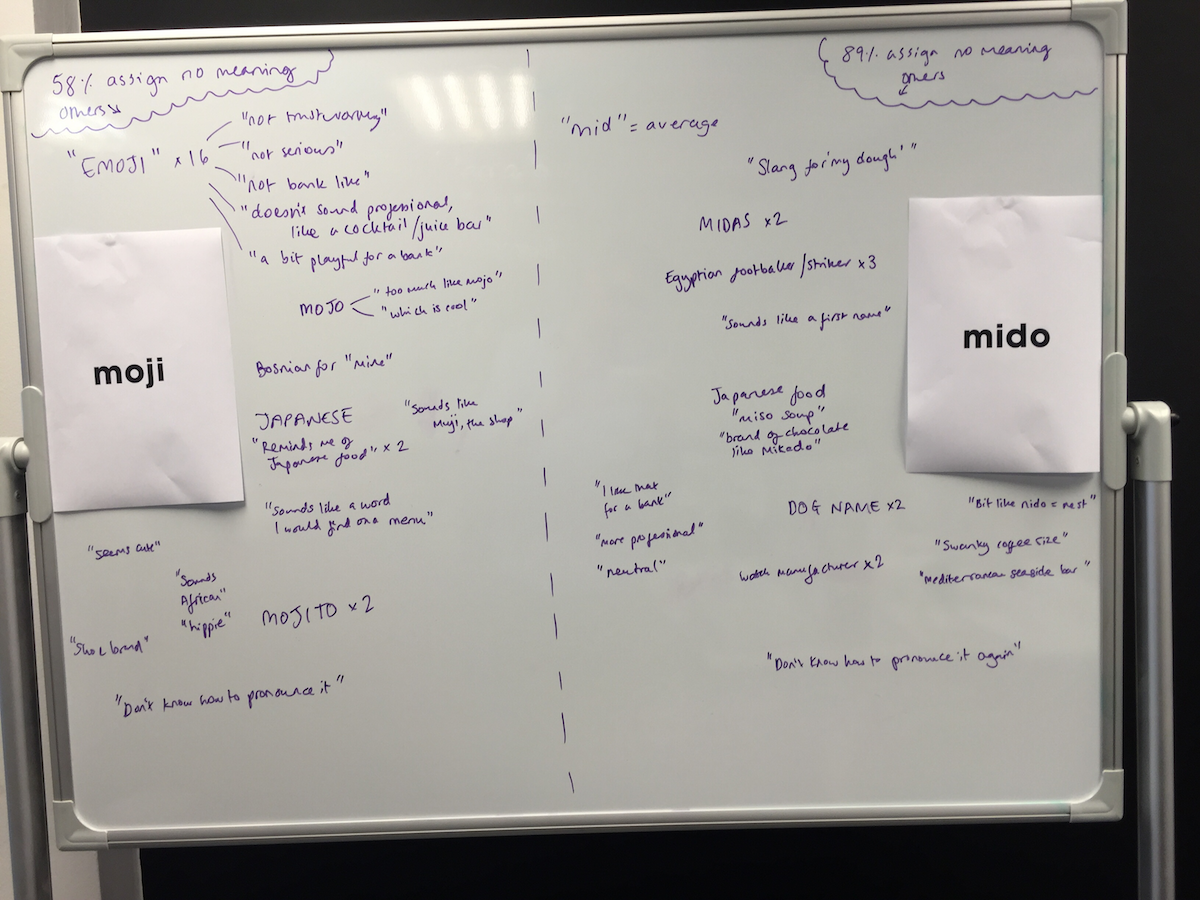 58% assign no meaning
others
"EMOJI" × 16
"not trustworthy"
"not serious"
"not bank like"
"doesn't sound professional,
like a cocktail/juice bar"
"a bit playful for a bank"
moji
MOJO
"too much like mojo"
"which is cool"
Bosnian for "mine"
JAPANESE
"Reminds me of
Japanese food" × 2
"Sounds like
Muji, the shop"
"Sounds like a word
I would find on a menu"
"seems cute"
"Sounds
African"
"hippie"
MOJITO × 2
"Shoe brand"
"Don't know how to pronounce it"
89% assign no meaning
others
"mid" = average
"Slang for 'my dough'"
MIDAS × 2
Egyptian footballer/striker × 3
"Sounds like a first name"
mido
Japanese food
"miso soup"
"brand of chocolate
like Mikado"
"I like that
for a bank"
"more professional"
"neutral"
DOG NAME × 2
"Bit like nido = nest"
"Swanky coffee size"
watch manufacturer × 2
"Mediterranean seaside bar"
"Don't know how to pronounce it again"